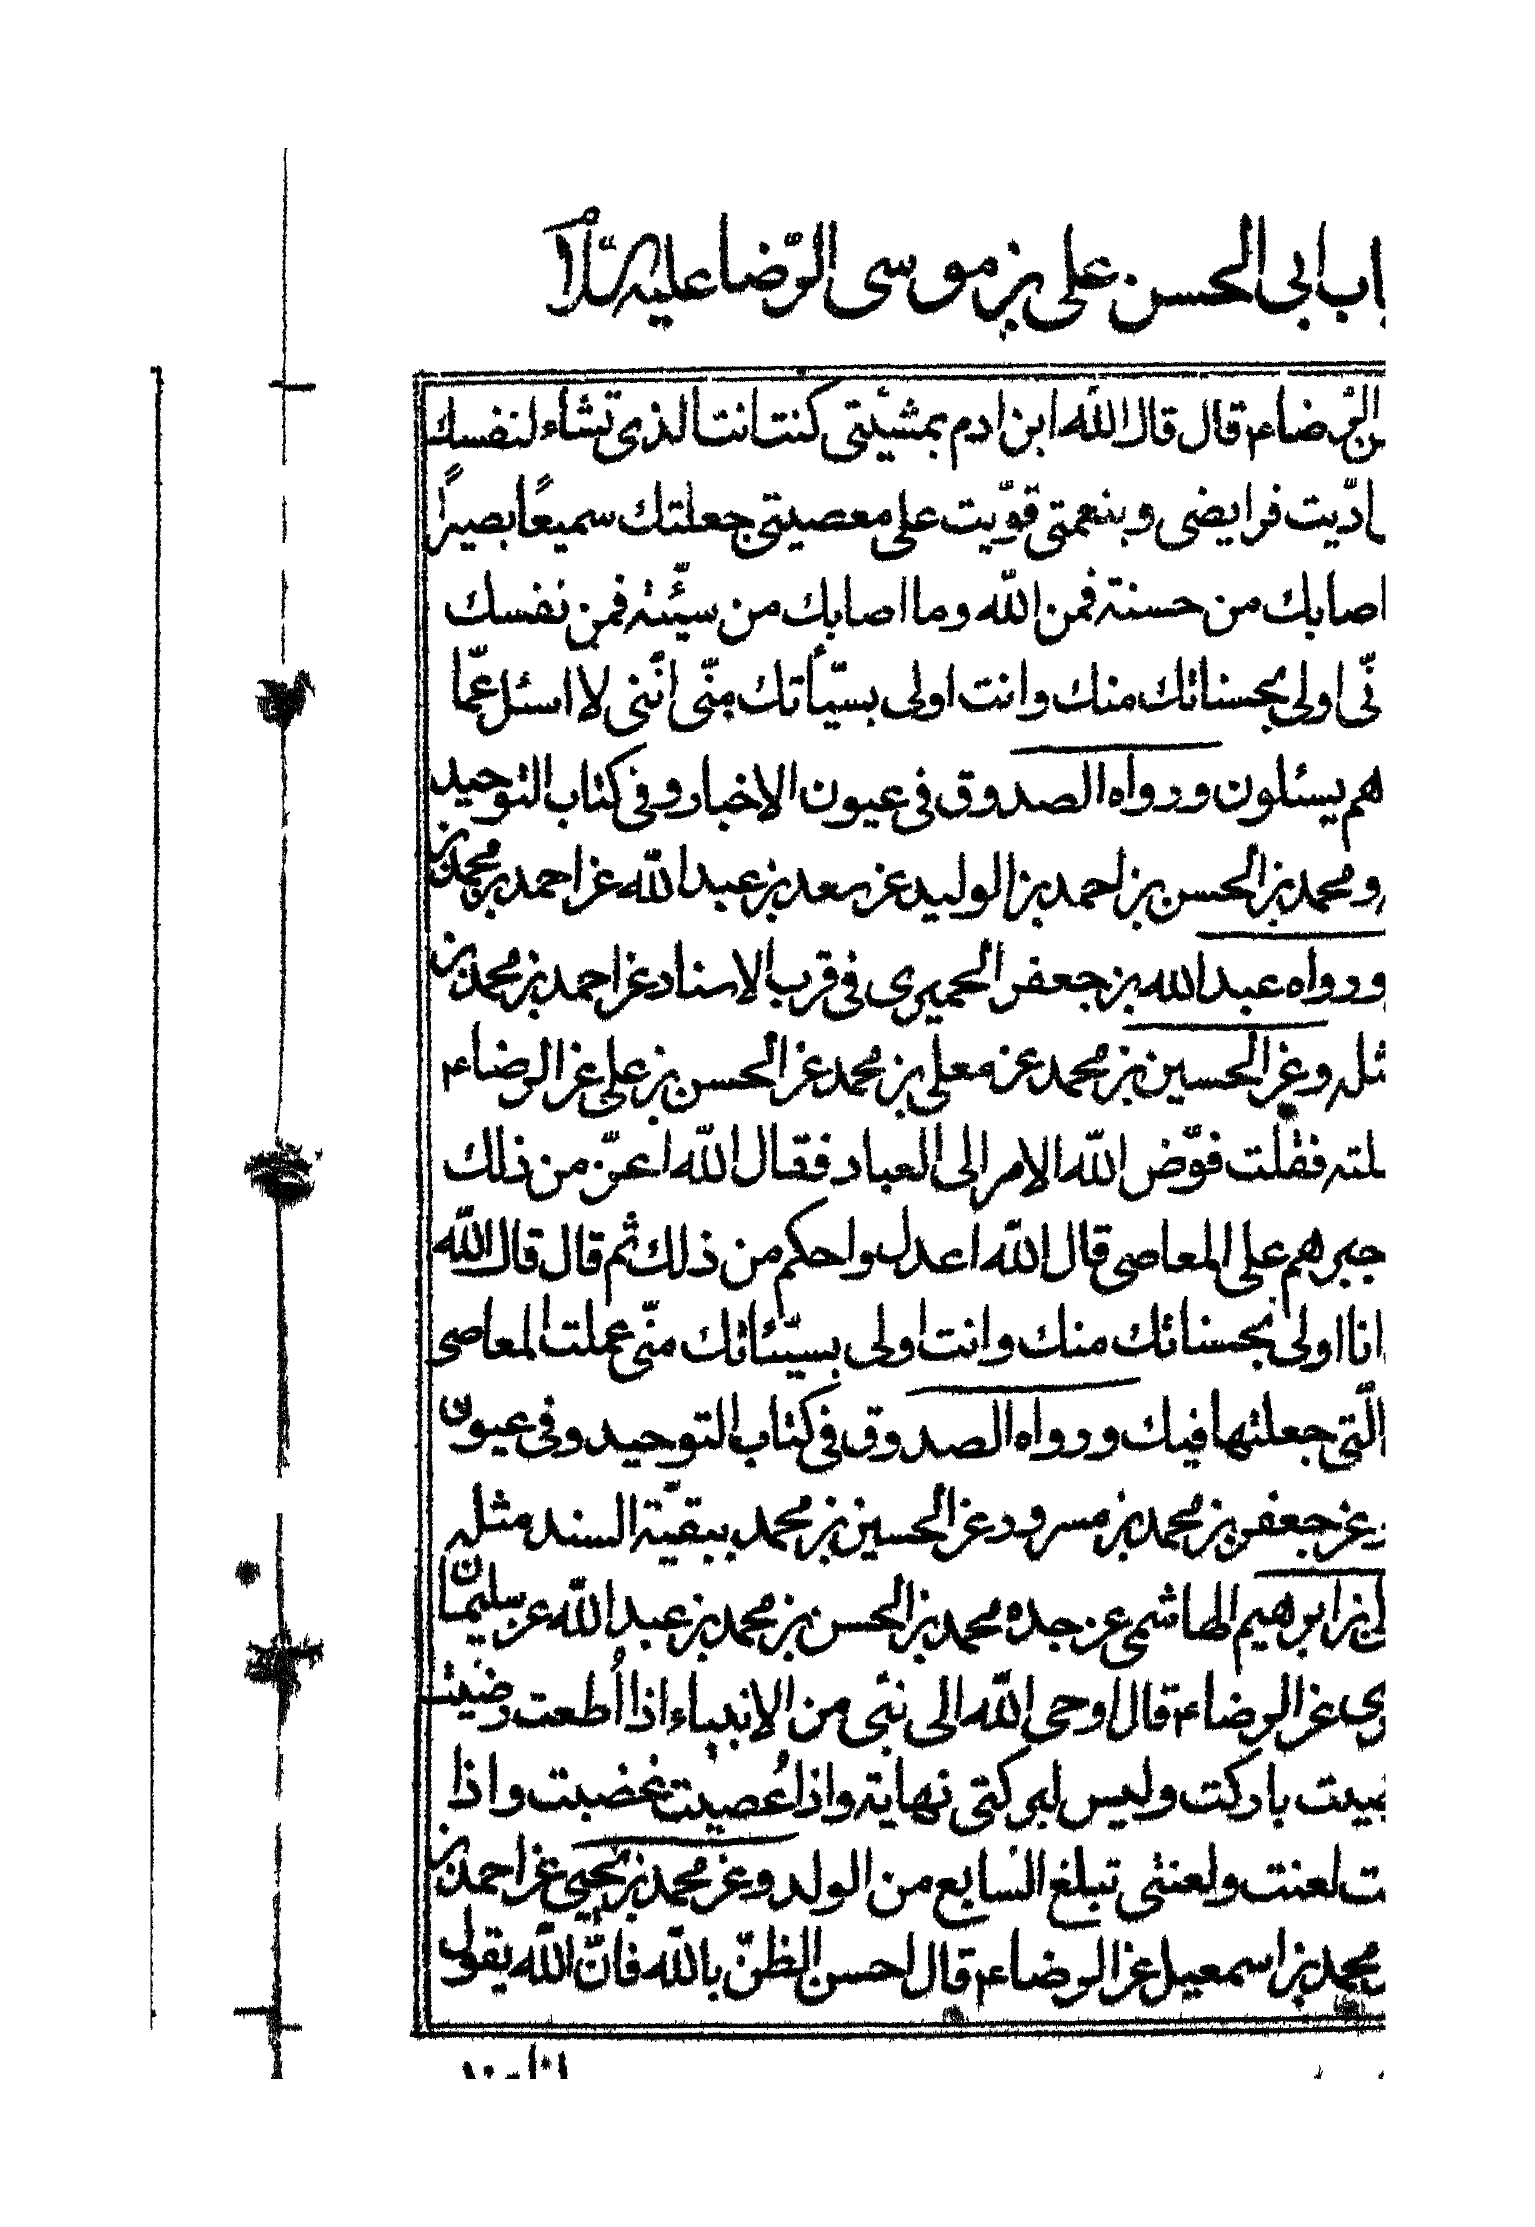 باب ابى الحسن على بن موسى الرّضا عليه السّلام
الرّضا ء قال قال الله ابن ادم بمشيّتى كنت انت الذى تشاء لنفسك
ادّيت فرايضى و بنعمتى قوّيت على معصيتى جعلتك سميعًا بصيرًا
اصابك من حسنة فمن الله وما اصابك من سيّئة فمن نفسك
انّى اولى بحسناتك منك وانت اولى بسيّأتك منّى انّنى لا اسئل عمّا
هم يسئلون ورواه الصدوق فى عيون الاخبار و فى كتاب التوحيد
و محمد بن الحسن بن احمد بن الوليد عن سعد بن عبد الله عن احمد بن محمد بن
و رواه عبد الله بن جعفر الحميرى فى قرب الاسناد عن احمد بن محمد بن
مثله وعن الحسين بن محمد عن معلى بن محمد عن الحسن بن على عن الرضا ء
سئلته فقلت فوّض الله الامر الى العباد فقال الله اعزّ من ذلك
جبرهم على المعاصى قال الله اعدل واحكم من ذلك ثم قال قال الله
انا اولى بحسناتك منك وانت اولى بسيّئاتك منّى عملت المعاصى
الّتى جعلتها فيك و رواه الصدوق فى كتاب التوحيد وفى عيون
عن جعفر بن محمد بن مسرور عن الحسين بن محمد ببقيّة السند مثله
بن ابرهيم الهاشمى عن جده محمد بن الحسن بن محمد بن عبد الله عن سليمان
عن الرضا ء قال اوحى الله الى نبّى من الانبياء اذا اُطعت رضيت
رضيت باركت وليس لبركتى نهاية واذا عُصيت غضبت واذا
لعنت ولعنتى تبلغ السّابع من الولد وعن محمد بن يحيى عن احمد بن
محمد بن اسمعيل عن الرضا ء قال احسن الظنّ بالله فانّ الله يقول